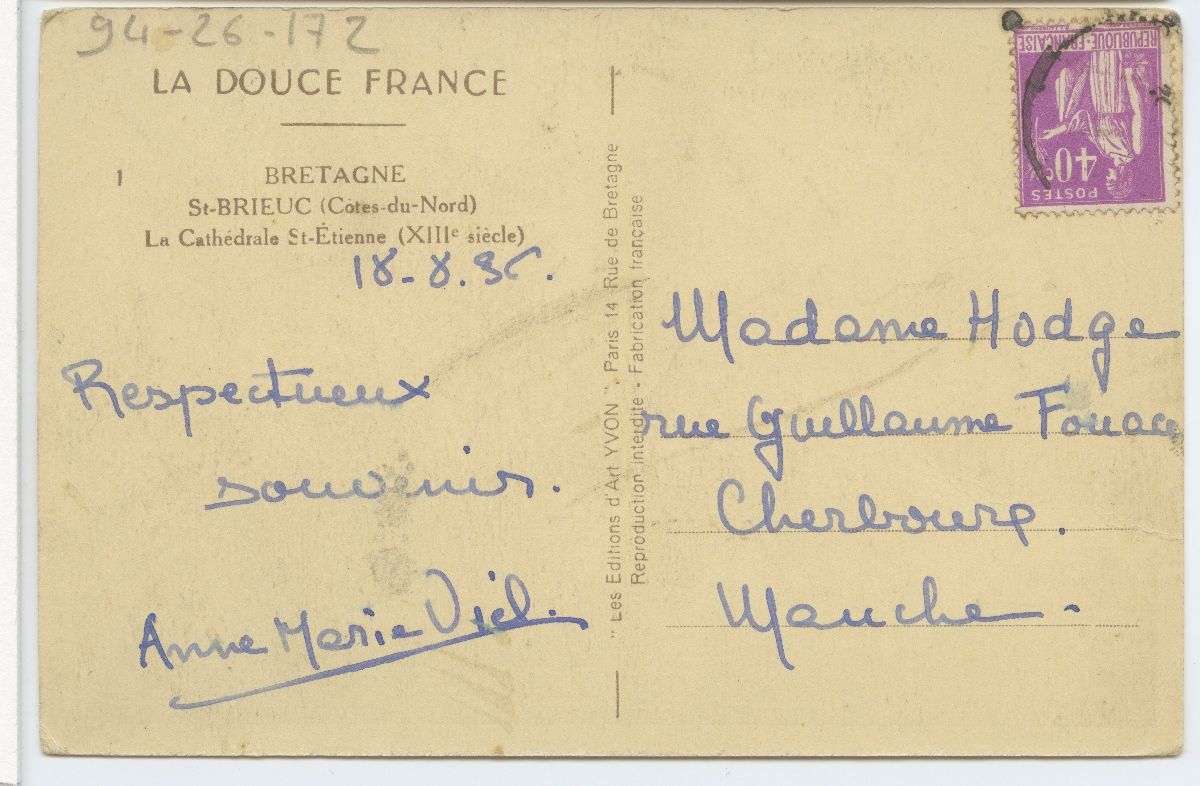 94-26-172
LA DOUCE FRANCE
1
BRETAGNE
St-BRIEUC (Côtes-du-Nord)
La Cathédrale St-Étienne (XIIIe siècle)
18-8.36.
Respectueux
souvenir.
Anne Marie Viel.
"Les Editions d'Art YVON" Paris 14 Rue de Bretagne
Reproduction interdite - Fabrication française
REPUBLIQUE-FRANÇAISE
40c
POSTES
Madame Hodge
rue Guillaume Fouace
Cherbourg.
Manche.